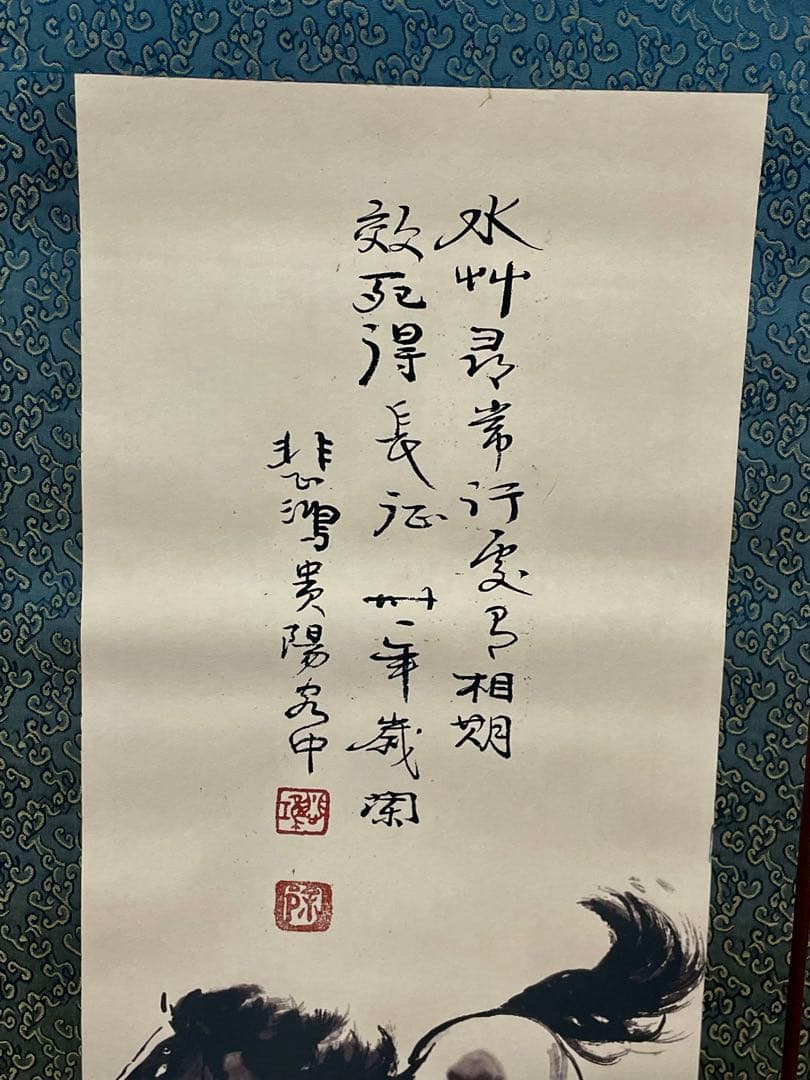 水艸尋常行處有相期
效死得長征 卅一年歲闌
悲鴻貴陽客中